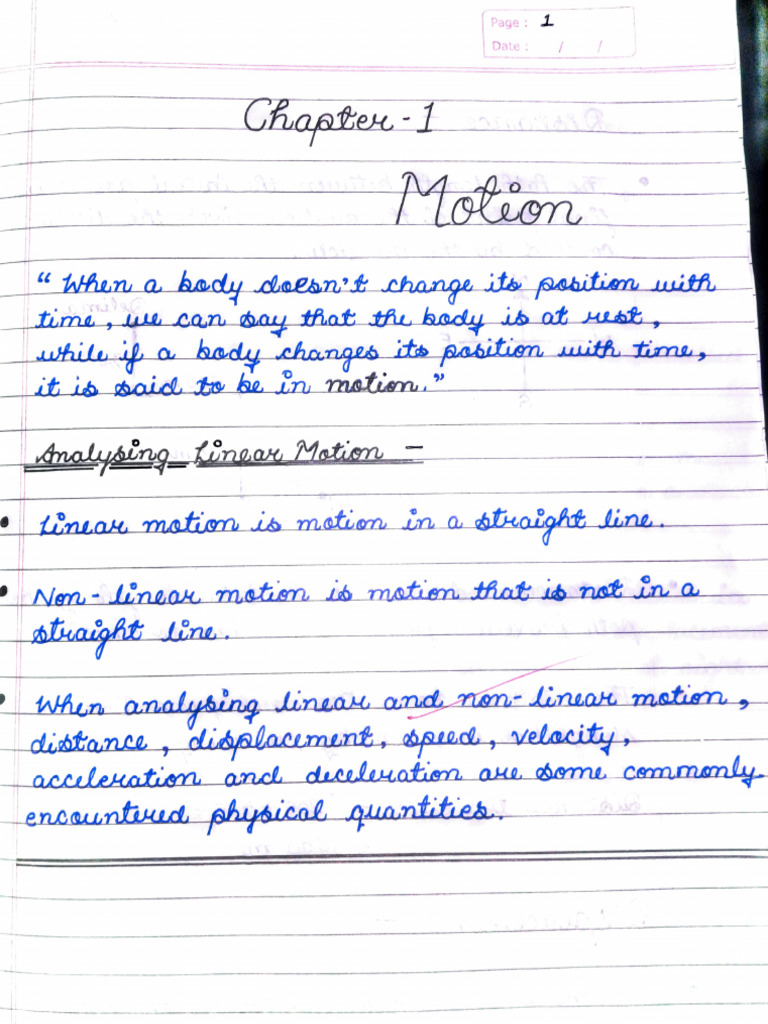 Page : 1
Date : / /
Chapter - 1
Motion
" When a body doesn't change its position with
time, we can say that the body is at rest,
while if a body changes its position with time,
it is said to be in motion."
Analysing Linear Motion -
• Linear motion is motion in a straight line.
• Non-linear motion is motion that is not in a
straight line.
• When analysing linear and non-linear motion,
distance, displacement, speed, velocity,
acceleration and deceleration are some commonly
encountered physical quantities.